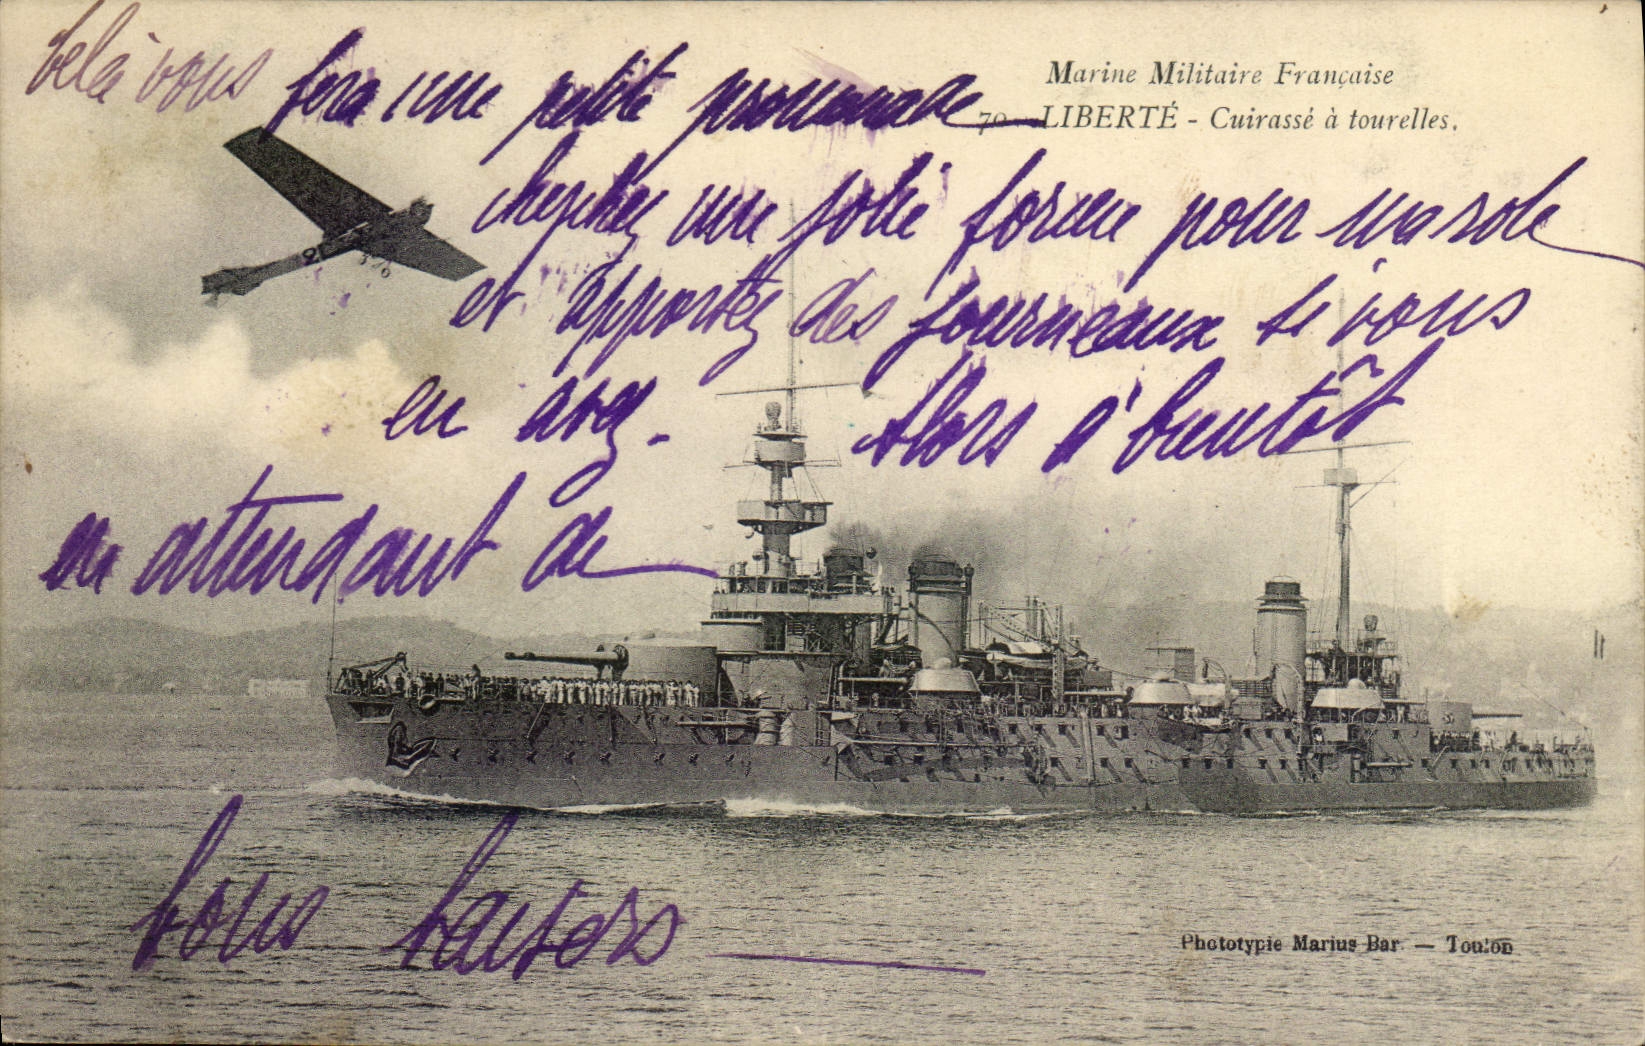 Marine Militaire Française
70 LIBERTÉ - Cuirassé à tourelles.
Celà vous fera une petite promenade
cherchez une jolie forme pour ma robe
et apportez des journeaux si vous
en avez. Alors à bientôt
en attendant de
bons baisers
Phototypie Marius Bar. — Toulon